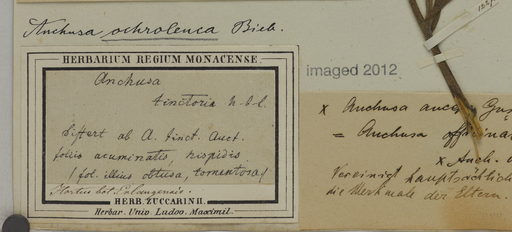 Anchusa ochroleuca Bieb.
HERBARIUM REGIUM MONACENSE
imaged 2012
Anchusa
tinctoria
differt ab A. tinct. Auct.
foliis acuminatis, hispidis
(fol. illius obtusa, tomentosa)
Hortus bot. Erlangensis.
HERB. ZUCCARINII.
Herbar. Univ. Ludov. Maximil.
x Anchusa
= Anchusa officinal
x Anch.
Vereinigt hauptsächlich
die Merkmale der Eltern.